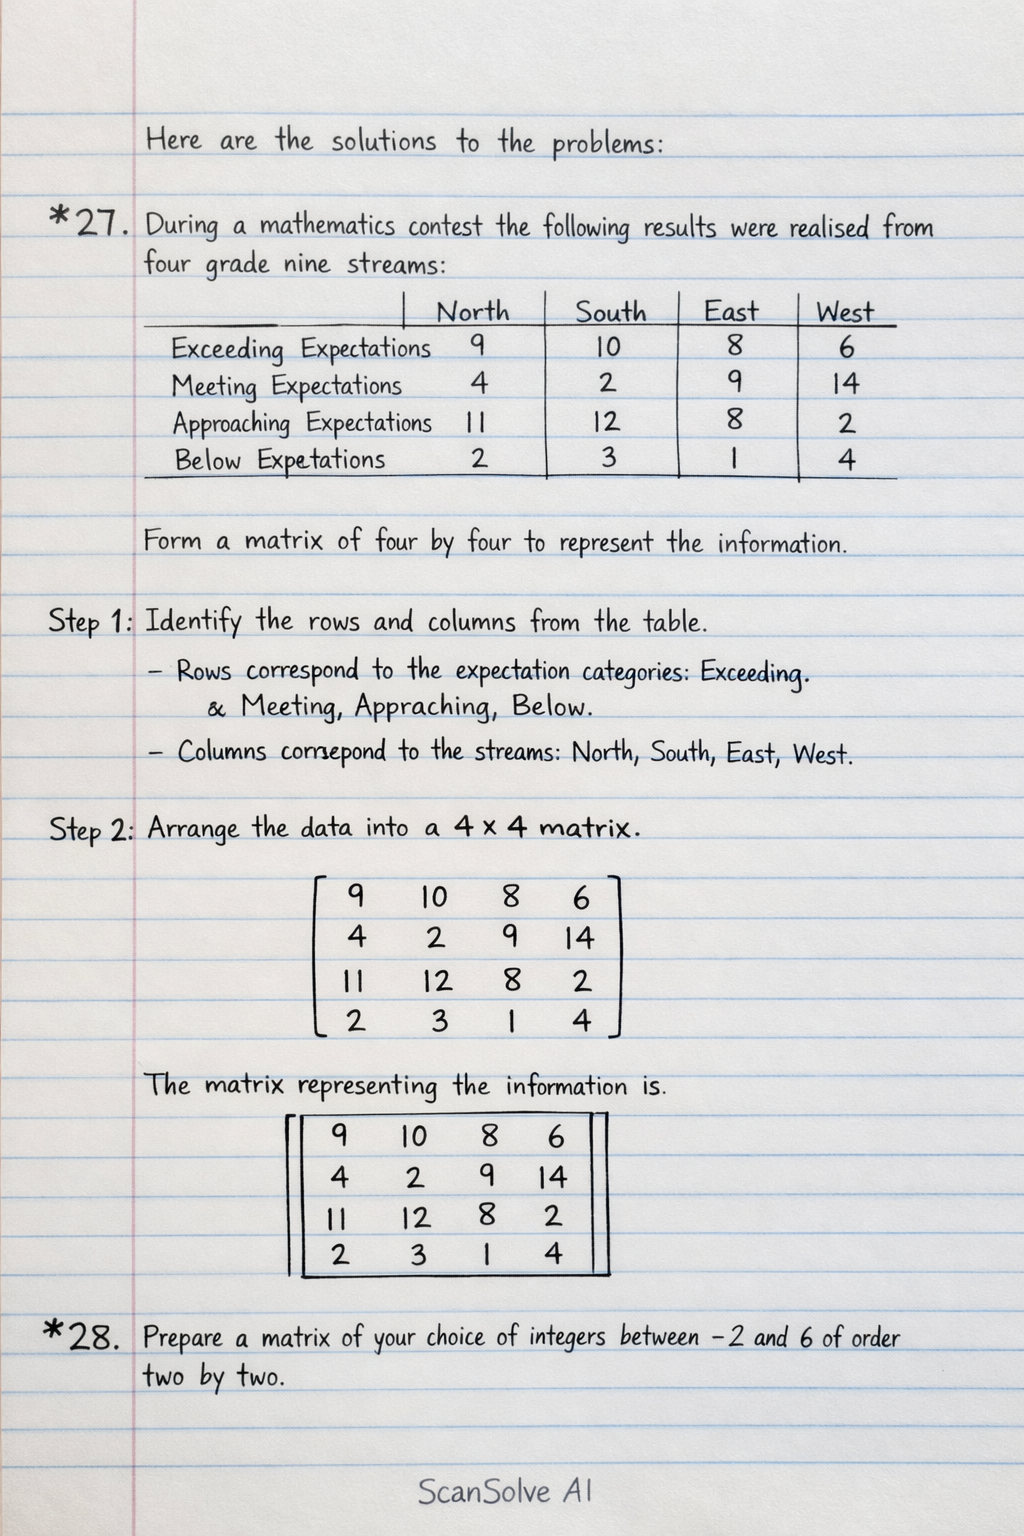 Here are the solutions to the problems:
*27. During a mathematics contest the following results were realised from
four grade nine streams:
North South East West
Exceeding Expectations 9 10 8 6
Meeting Expectations 4 2 9 14
Approaching Expectations 11 12 8 2
Below Expetations 2 3 1 4
Form a matrix of four by four to represent the information.
Step 1: Identify the rows and columns from the table.
– Rows correspond to the expectation categories: Exceeding.
& Meeting, Appraching, Below.
– Columns corrsepond to the streams: North, South, East, West.
Step 2: Arrange the data into a 4 x 4 matrix.
9 10 8 6
4 2 9 14
11 12 8 2
2 3 1 4
The matrix representing the information is.
9 10 8 6
4 2 9 14
11 12 8 2
2 3 1 4
*28. Prepare a matrix of your choice of integers between –2 and 6 of order
two by two.
ScanSolve AI